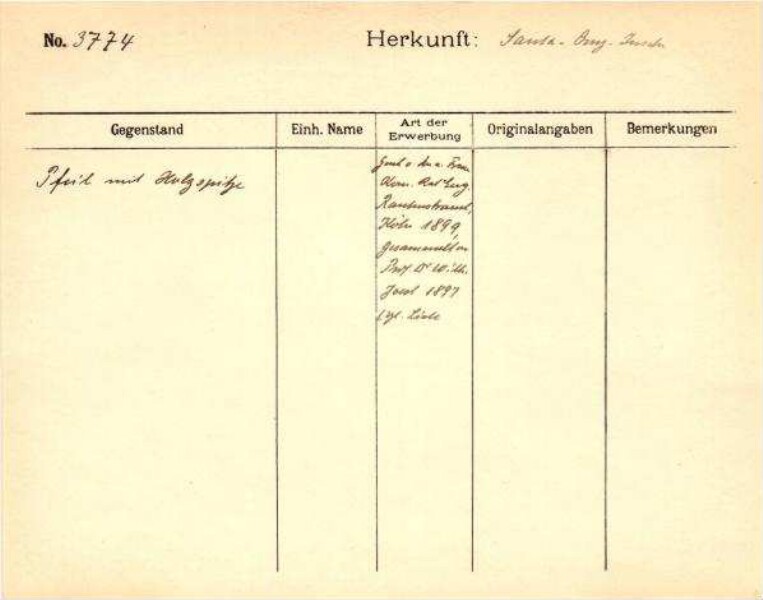 No. 3774
Herkunft: Santa-Cruz-Inseln
Gegenstand
Einh. Name
Art der Erwerbung
Originalangaben
Bemerkungen
Pfeil mit Holzspitze
Frau
Kom. Rat Eug.
Rautenstrauch,
Köln 1899,
gesammelt v.
Prof. Dr Wilh.
Joest 1897
vgl. Liste